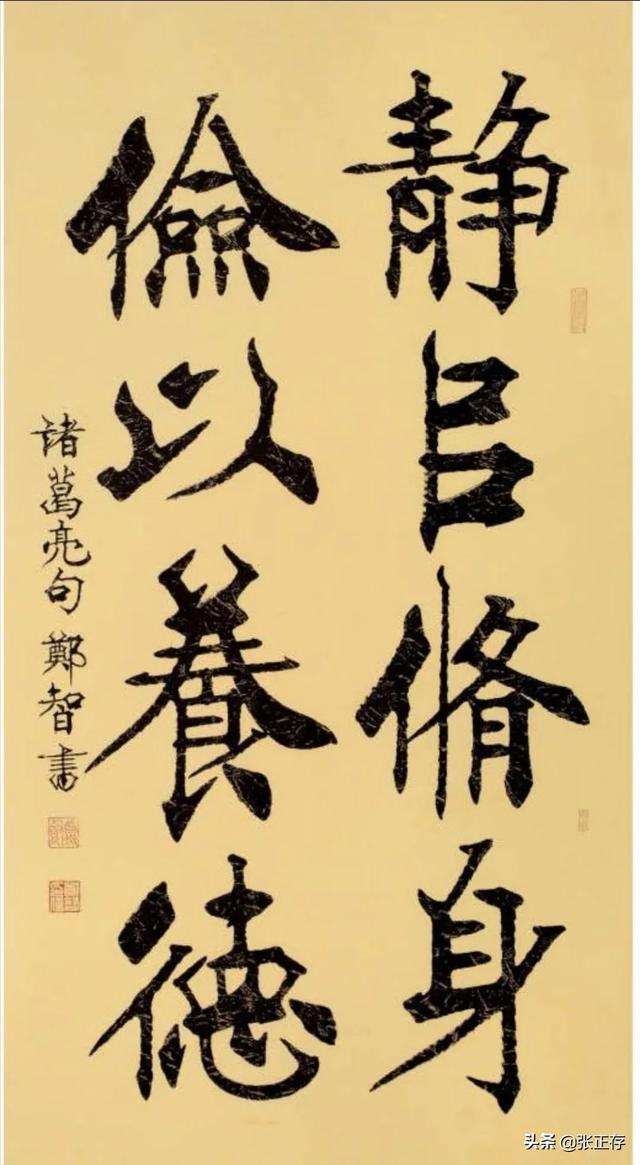 静㠯脩身
儉以養德
諸葛亮句 鄭智書
头条 @张正存